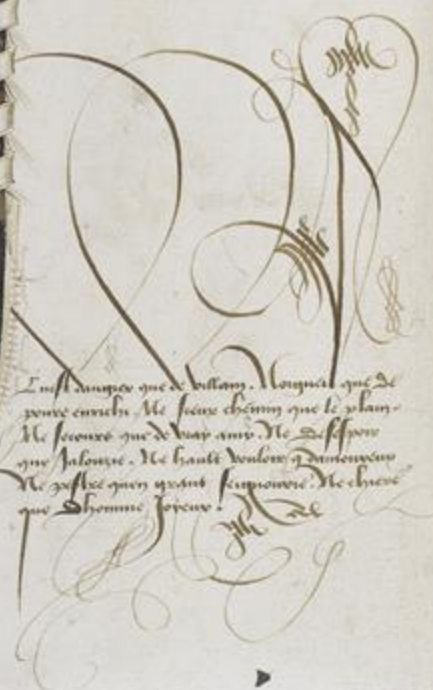 Il nest dangier que de villain. Norgueil que de
poure enrichi. Ne seeur chemin que le plain.
Ne secours que de vray amy. Ne desespoir
que Jalouzie. Ne hault vouloir que damoureux
Ne pestre quen grant seignourie. Ne chiere
que dhomme Joyeux.